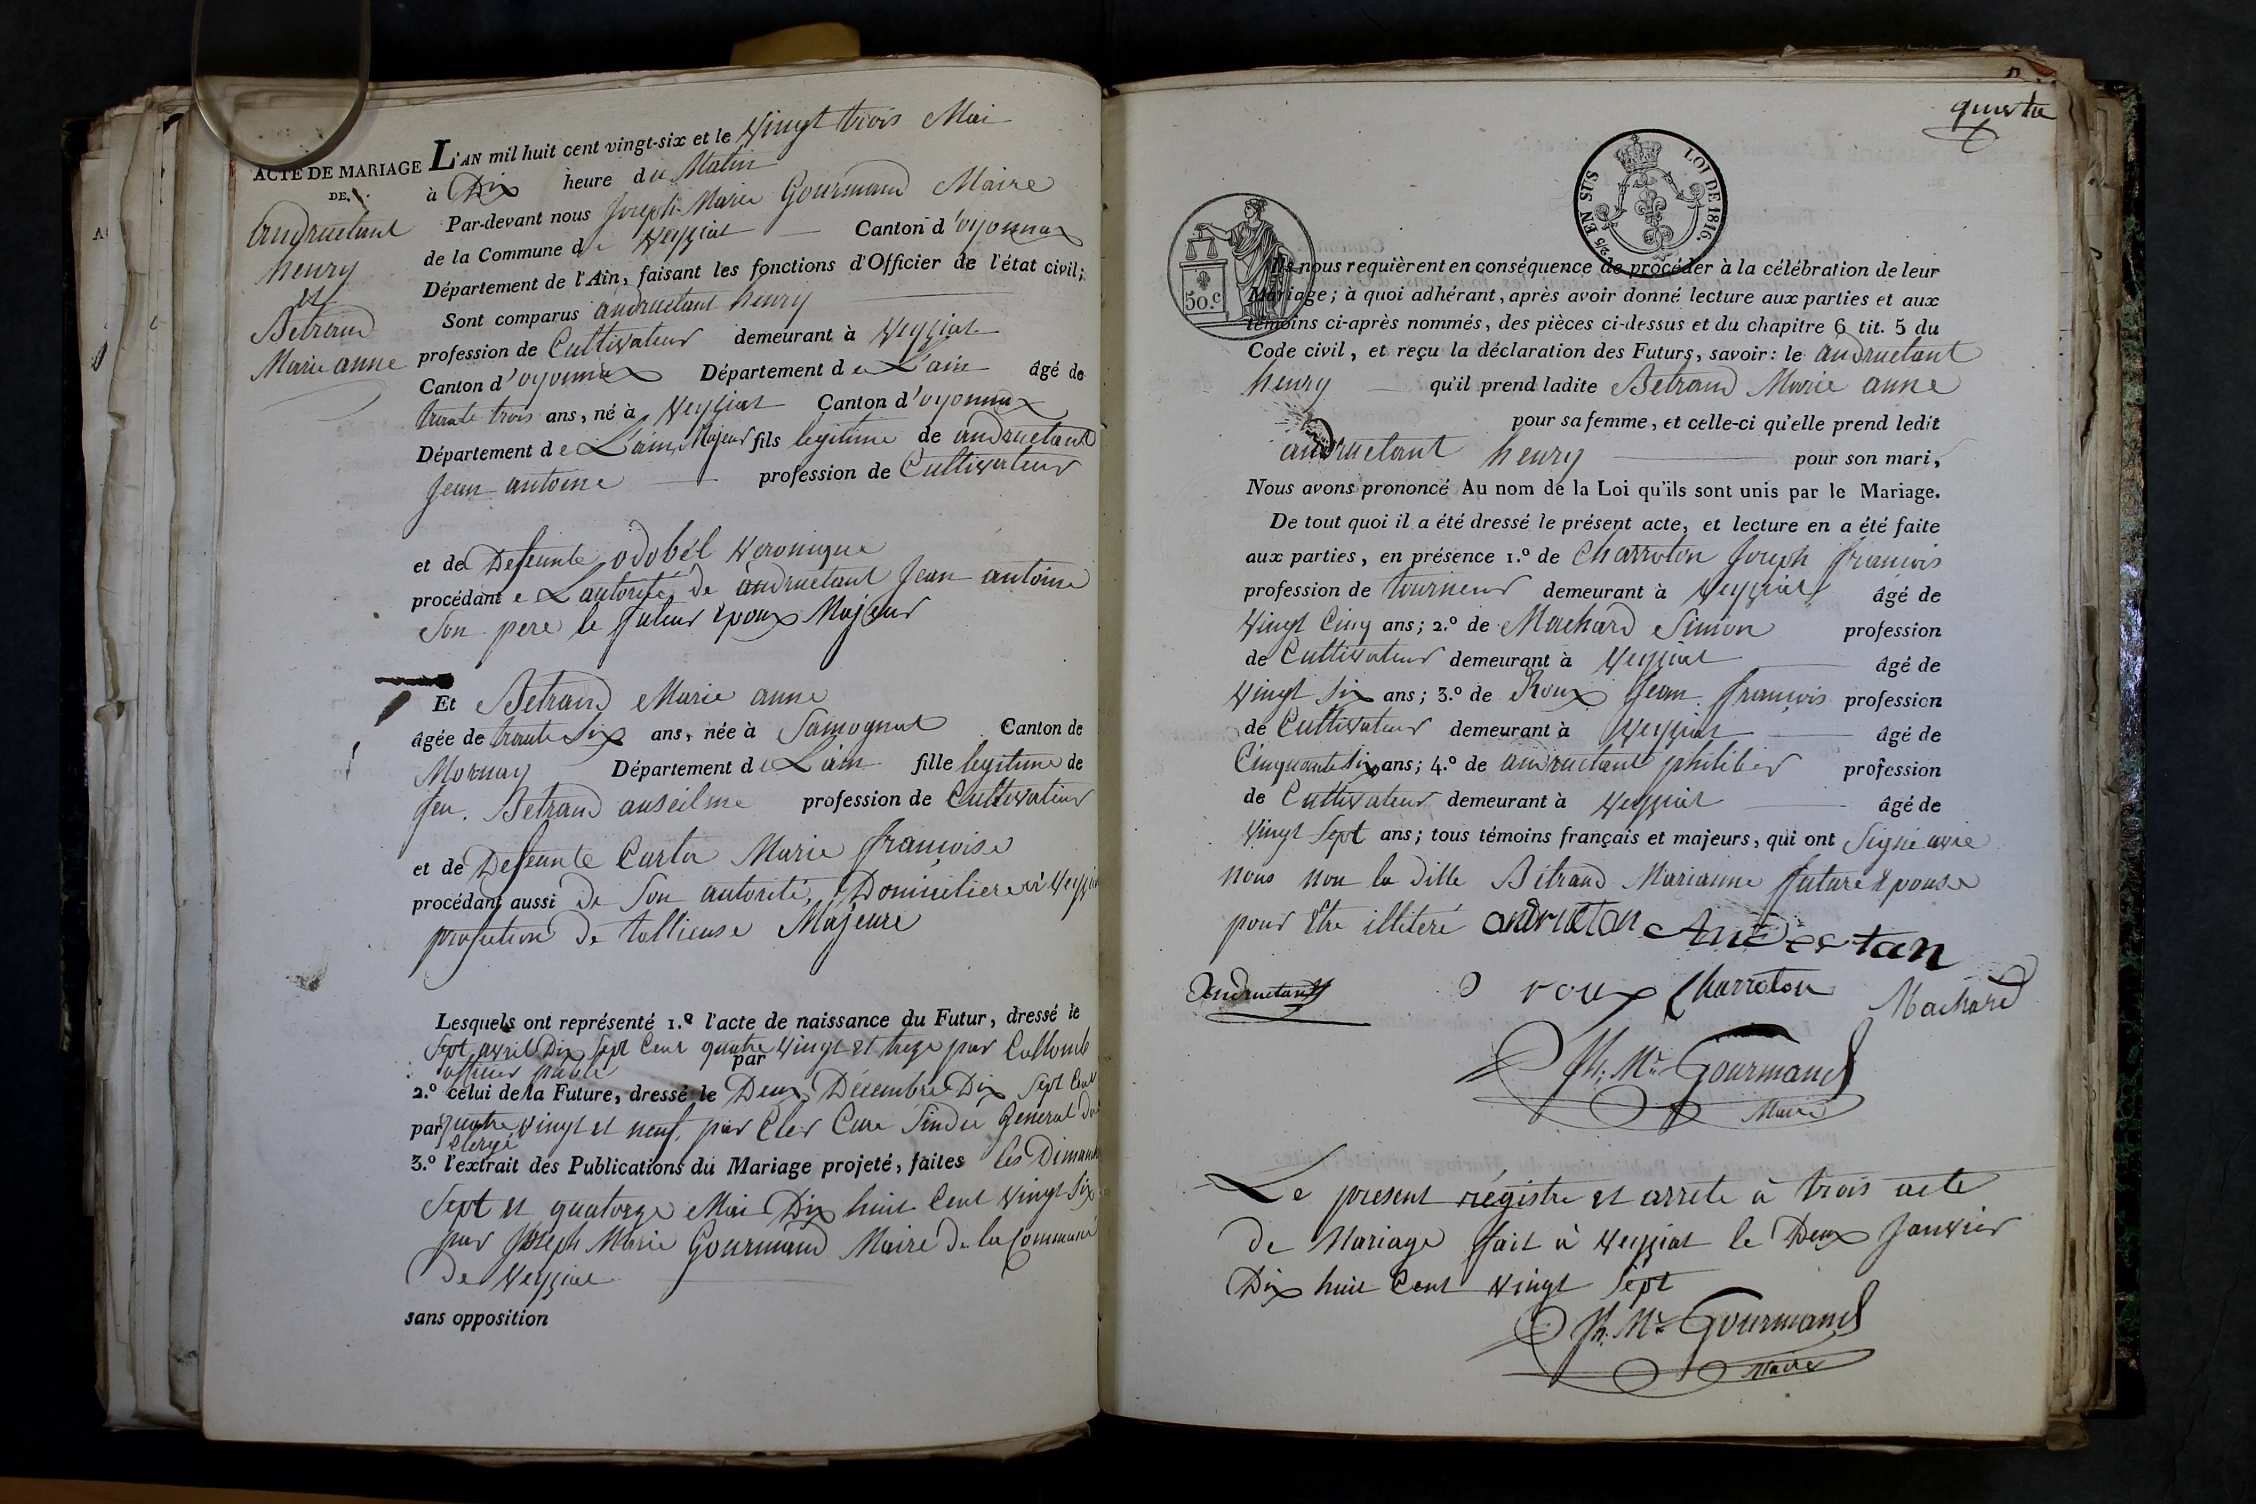 ACTE DE MARIAGE
DE
andructant
henry
et
Betrand
Marie anne
L'AN mil huit cent vingt-six et le Vingt trois Mai
à Dix heure du Matin
Par-devant nous Joseph Marie Gourmand Maire
de la Commune de Veyziat Canton d'oyonnax
Département de l'Ain, faisant les fonctions d'Officier de l'état civil;
Sont comparus andructant henry
profession de Cultivateur demeurant à Veyziat
Canton d'oyonnax Département de L'ain âgé de
trente trois ans, né à Veyziat Canton d'oyonnax
Département de L'ain, Majeur fils legitime de andructant
Jean antoine profession de Cultivateur
et de Defeunte odobél Veronique
procédant de L'autorité de andructant Jean antoine
Son pere le futeur Epoux Majeur
Et Betrand Marie anne
âgée de trante Six ans, née à Samognat Canton de
Mornay Département de L'ain fille legitime de
feu Betrand anseilme profession de Cultivateur
et de Defeunte Carla Marie françoise
procédant aussi de Son autorité, Domiciliere à Veyziat
profestion de tallieuse Majeure
Lesquels ont représenté 1.º l'acte de naissance du Futur, dressé le
Sept avril Dix Sept Cent quatre Vingt et treze par Collomb
officier public par
2.º celui de la Future, dressé le Deux Décembre Dix Sept Cent
par quatre vingt et neuf, par Cler Cure Sindic General du
Clergé
3.º l'extrait des Publications du Mariage projeté, faites les Dimanche
Sept et quatorze Mai Dix huit Cent Vingt Six
par Joseph Marie Gourmand Maire de la Commune
De Veyziat
sans opposition
50.C
2/5 EN SUS
LOI DE 1816.
Ils nous requièrent en conséquence de procéder à la célébration de leur
Mariage; à quoi adhérant, après avoir donné lecture aux parties et aux
témoins ci-après nommés, des pièces ci-dessus et du chapitre 6 tit. 5 du
Code civil, et reçu la déclaration des Futurs, savoir: le andructant
henry qu'il prend ladite Betrand Marie anne
pour sa femme, et celle-ci qu'elle prend ledit
andructant henry pour son mari,
Nous avons prononcé Au nom de la Loi qu'ils sont unis par le Mariage.
De tout quoi il a été dressé le présent acte, et lecture en a été faite
aux parties, en présence 1.º de Charroton Joseph françois
profession de tourneur demeurant à Veyziat âgé de
Vingt Cinq ans; 2.º de Machard Simon profession
de Cultivateur demeurant à Veyziat âgé de
Vingt Six ans; 3.º de Roux Jean françois profession
de Cultivateur demeurant à Veyziat âgé de
Cinquante Six ans; 4.º de andructant philiber profession
de Cultivateur demeurant à Veyziat âgé de
Vingt Sept ans; tous témoins français et majeurs, qui ont Signé avec
nous non la ditte Bétrand Marianne future Epouse
pour Etre illiteré andructan Andrectan
Andructant roux Charroton Machard
Jh. Mie Gourmand
Maire
Le present régistre et arrete à trois acte
de Mariage fait à Veyziat le Deux Janvier
Dix huit Cent Vingt Sept
Jh. Mie Gourmand
Maire